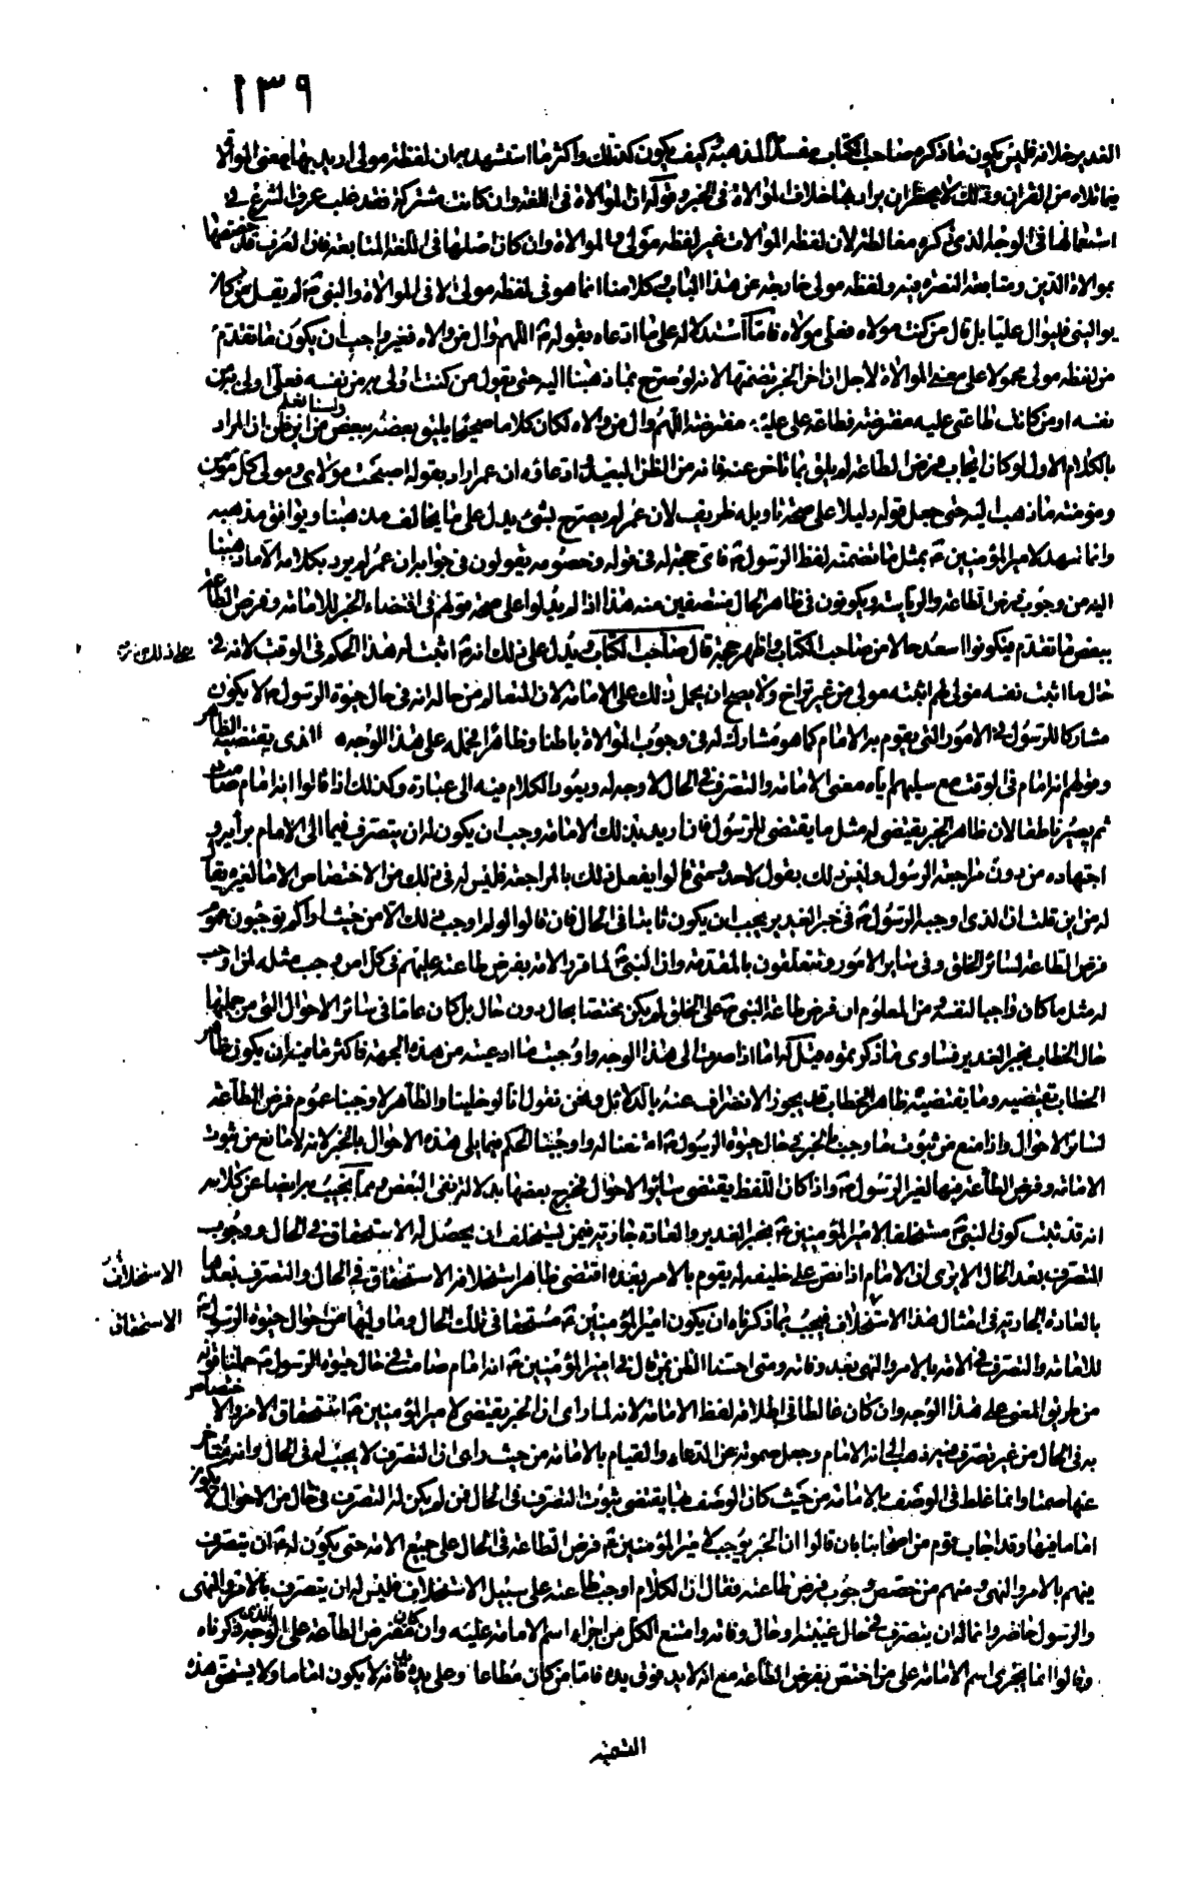 ١٣٩
الغدير خلافه فليس يكون ما ذكره صاحب الكتاب مفسدا لمذهبه كيف يكون كذلك واكثر ما استشهد به ان لفظة مولى اريد بها معنى الموالاة
فيما تلاه من القرآن وذلك لا يحظر ان يراد بها خلاف الموالاة في الخبر وقوله ان الموالاة في اللغة وان كانت مشتركة فقد غلب عرف الشرع في
استعمالها في الوجه الذي ذكره مغالطة لان لفظة الموالات غير لفظه مولى والموالاة وان كان اصلها في اللغة المتابعة فان العرف قد خصصها
بموالاة الدين ومتابعة النصرة فيه ولفظه مولى خارجة عن هذا الباب وكلامنا انما هو في لفظه مولى لا في الموالاة والنبي لم يقل من كان
يوالي النبي فليوال عليا بل قال من كنت مولاه فعلي مولاه فاما استدلاله على ما ادعاه بقوله اللهم وال من والاه فغير واجب ان يكون ما تقدم
من لفظه مولى محمولا على معنى الموالاة لاجل ان اخر الخبر تضمنها لانه لو صرح بما ذهبنا اليه حتى يقول من كنت اولى به من نفسه فعلي اولى به من
نفسه او من كانت طاعتي عليه مفترضة فطاعة علي عليه مفترضة اللهم وال من والاه لكان كلاما صحيحا يليق بعضه ببعض ولسنا نعلم من اين ظن ان المراد
بالكلام الاول لو كان ايجاب فرض الطاعة لم يلق بما تاخر عنه فانه من الظن البعيد وادعاؤه ان عمر اراد بقوله اصبحت مولاي ومولى كل مؤمن
ومؤمنة ما ذهب اليه حتى جعل قوله دليلا على صحة تاويله طريف لان عمر لم يصرح بشيء يدل على ما يخالف مذهبنا ويوافق مذهبه
وانما شهد لامير المؤمنين بمثل ما تضمنه لفظ الرسول فاي حجة له في قوله وخصومه يقولون في جوابه ان عمر لم يرد بكلامه الا ما ذهبنا
اليه من وجوب فرض الطاعة والرياسة ويكونون في ظاهر الحال منتصفين منه هذا اذا لم يدلوا على صحة قولهم في اقتضاء الخبر للامامة وفرض الطاعة
ببعض ما تقدم فيكونوا اسعد حالا من صاحب الكتاب واظهر حجة قال صاحب الكتاب ويدل على ذلك انه اثبت له هذا الحكم في الوقت لانه في
حال ما اثبت نفسه مولى لهم اثبته مولى من غير تراخ ولا يصح ان يحمل ذلك على الامامة لان المتعالم من حاله انه في حال حيوة الرسول لا يكون
مشاركا للرسول في الامور التي يقوم بها الامام كما هو مشارك له في وجوب الموالاة باطنا وظاهرا فحمله على هذا الوجه الذي يقتضيه الظاهر
وقولهم انه امام في الوقت مع سلبهم اياه معنى الامامة والتصرف في الحال لا وجه له ويعود الكلام فيه الى عبارة وكذلك اذا قالوا انه امام صامت
ثم يصير ناطقا لان ظاهر الخبر يقتضي له مثل ما يقتضي للرسول فان اريد بذلك الامامة وجب ان يكون له ان يتصرف فيما الى الامام برأيه و
اجتهاده من دون مراجعة الرسول وليس ذلك بقول لاحد ومتى قالوا يفعل ذلك بالمراجعة فليس له في ذلك من الاختصاص الا ما لغيره يقال
له من اين قلت ان الذي اوجبه الرسول في خبر الغدير يجب ان يكون ثابتا في الحال فان قالوا لو لم اوجب ذلك الا من حيث اراكم توجبون عموم
فرض الطاعة لسائر الخلق وفي سائر الامور وتتعلقون بالمقدمة وان النبي لما قرر الامة بفرض طاعته عليهم في كل امر وجب مثله لمن اوجب
له مثل ما كان واجبا لنفسه ومن المعلوم ان فرض طاعة النبي على الخلق لم يكن مختصا بحال دون حال بل كان عاما في سائر الاحوال التي من جملتها
حال الخطاب بخبر الغدير فساوى ما ذكرتموه قيل له اما اذا صرت الى هذا الوجه واوجبت ما ادعيته من هذه الجهة فاكثر ما فيه ان يكون ظاهر
الخطاب يقتضيه وما يقتضيه ظاهر الخطاب قد يجوز الانصراف عنه بالدلائل ونحن نقول انا لو خلينا والظاهر لاوجبنا عموم فرض الطاعة
لسائر الاحوال واذا منع من ثبوت ما وجب بالخبر في حال حيوة الرسول امتنعنا له واوجبنا الحكم فيما يلي هذه الاحوال بالخبر لانه لا مانع من ثبوت
الامامة وفرض الطاعة فيها لغير الرسول واذا كان اللفظ يقتضي سائر الاحوال فخرج بعضها بدلالة بقي البعض ومما يجيب به ايضا عن كلامه
انه قد ثبت كون النبي مستخلفا لامير المؤمنين بخبر الغدير والعادة جارية فيمن يستخلف ان يحصل له الاستحقاق في الحال ووجوب
التصرف بعد الحال الا ترى ان الامام اذا نص على خليفة له يقوم بالامر بعده اقتضى ظاهر استخلافه الاستحقاق في الحال والتصرف بعدها
بالعادة الجارية في امثال هذا الاستخلاف فيجب بما ذكرناه ان يكون امير المؤمنين مستحقا في تلك الحال وما وليها من احوال حيوة الرسول
للامامة والتصرف في الامة بالامر والنهي بعد وفاته ومتى احسنا الظن بمن قال في امير المؤمنين انه امام صامت في حال حيوة الرسول حملنا قوله
من طريق المعنى على هذا الوجه وان كان غالطا في اطلاقه لفظ الامامة لانه لما رأى ان الخبر يقتضي لامير المؤمنين استحقاق الامر والاختصاص
به في الحال من غير تصرف فيه ذهب الى انه الامام وجعل صموته عن الدعاء والقيام بالامامة من حيث رأى ان التصرف لا يجب له في الحال وانه متأخر
عنها صمتا وانما غلط في الوصف بالامامة من حيث كان الوصف بها يقتضي ثبوت التصرف في الحال فمن لم يكن له التصرف في حال من الاحوال لا يكون
اماما فيها وقد اجاب قوم من اصحابنا بان قالوا ان الخبر يوجب لامير المؤمنين فرض الطاعة في الحال على جميع الامة حتى يكون له ان يتصرف
فيهم بالامر والنهي ومنهم من خصص وجوب فرض طاعته فقال ان الكلام اوجب طاعته على سبيل الاستخلاف فليس له ان يتصرف بالامر والنهي
والرسول حاضر وانما له ان يتصرف في حال غيبته او حال وفاته وامتنع الكل من اجراء اسم الامامة عليه وان كان مفترض الطاعة على الوجه الذي ذكرناه
وقالوا انما يجري اسم الامامة على من اختص بفرض الطاعة مع انه لا يد فوق يده فاما من كان مطاعا وعلى يده يد فانه لا يكون اماما ولا يستحق هذه
على ذلك
الاستخلاف
الاستحقاق
التسمية